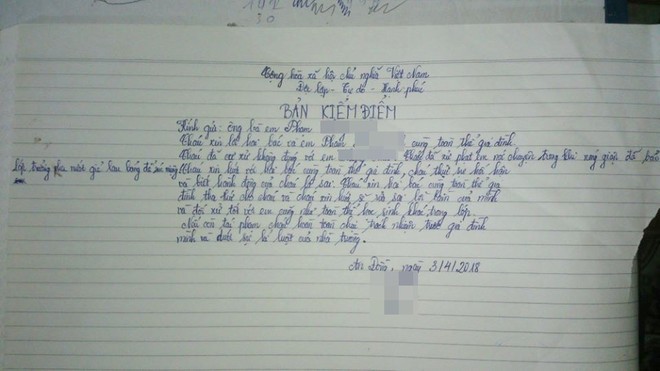 Cộng hòa xã hội chủ nghĩa Việt Nam
Độc lập - Tự do - Hạnh phúc
BẢN KIỂM ĐIỂM
Kính gửi: ông bà em Phạm
Cháu xin lỗi hai bác và em Phạm cùng toàn thể gia đình.
Cháu đã cư xử không đúng với em Cháu đã xử phạt em nói chuyện trong khi nóng giận đã bảo
lớp trưởng pha nước giẻ lau bảng để súc miệng. Cháu xin hứa với hai bác cùng toàn thể gia đình, cháu thật sự hối hận
và biết hành động của cháu là sai. Cháu xin hai bác cùng toàn thể gia
đình tha thứ cho cháu và cháu xin hứa sẽ sửa sai lỗi lầm của mình
và đối xử tốt với em cũng như toàn thể học sinh khác trong lớp.
Nếu còn tái phạm cháu hoàn toàn chịu trách nhiệm trước gia đình
mình và dưới sự của nhà trường.
An Đồng, ngày 3/4/2018